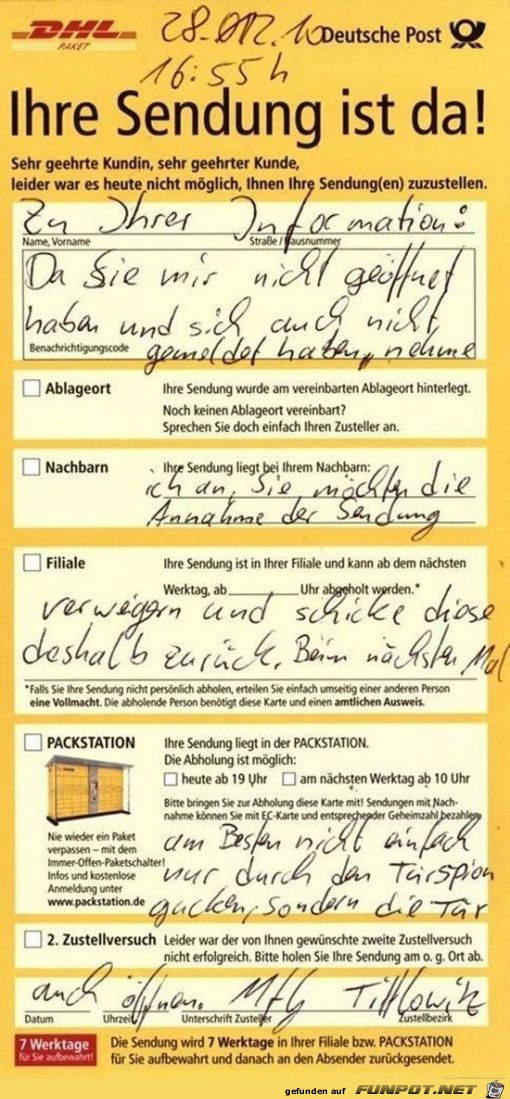 DHL
PAKET
28.012.10
Deutsche Post
16:55h
Ihre Sendung ist da!
Sehr geehrte Kundin, sehr geehrter Kunde,
leider war es heute nicht möglich, Ihnen Ihre Sendung(en) zuzustellen.
Zu Ihrer Information:
Name, Vorname Straße / Hausnummer
Da Sie mir nicht geöffnet
haben und sich auch nicht
Benachrichtigungscode gemeldet haben, nehme
Ablageort Ihre Sendung wurde am vereinbarten Ablageort hinterlegt.
Noch keinen Ablageort vereinbart?
Sprechen Sie doch einfach Ihren Zusteller an.
Nachbarn Ihre Sendung liegt bei Ihrem Nachbarn:
ich an, Sie möchten die
Annahme der Sendung
Filiale Ihre Sendung ist in Ihrer Filiale und kann ab dem nächsten
Werktag, ab Uhr abgeholt werden.*
verweigern und schicke diese
deshalb zurück. Beim nächsten Mal
*Falls Sie Ihre Sendung nicht persönlich abholen, erteilen Sie einfach umseitig einer anderen Person
eine Vollmacht. Die abholende Person benötigt diese Karte und einen amtlichen Ausweis.
PACKSTATION Ihre Sendung liegt in der PACKSTATION.
Die Abholung ist möglich:
heute ab 19 Uhr am nächsten Werktag ab 10 Uhr
Bitte bringen Sie zur Abholung diese Karte mit! Sendungen mit Nach-
nahme können Sie mit EC-Karte und entsprechender Geheimzahl bezahlen.
Nie wieder ein Paket
verpassen – mit dem
Immer-Offen-Paketschalter!
Infos und kostenlose
Anmeldung unter
www.packstation.de
am Besten nicht einfach
nur durch den Türspion
gucken, sondern die Tür
2. Zustellversuch Leider war der von Ihnen gewünschte zweite Zustellversuch
nicht erfolgreich. Bitte holen Sie Ihre Sendung am o. g. Ort ab.
auch öffnen. MfG Tittlowitz
Datum Uhrzeit Unterschrift Zusteller Zustellbezirk
7 Werktage
für Sie aufbewahrt!
Die Sendung wird 7 Werktage in Ihrer Filiale bzw. PACKSTATION
für Sie aufbewahrt und danach an den Absender zurückgesendet.
gefunden auf FUNPOT.NET